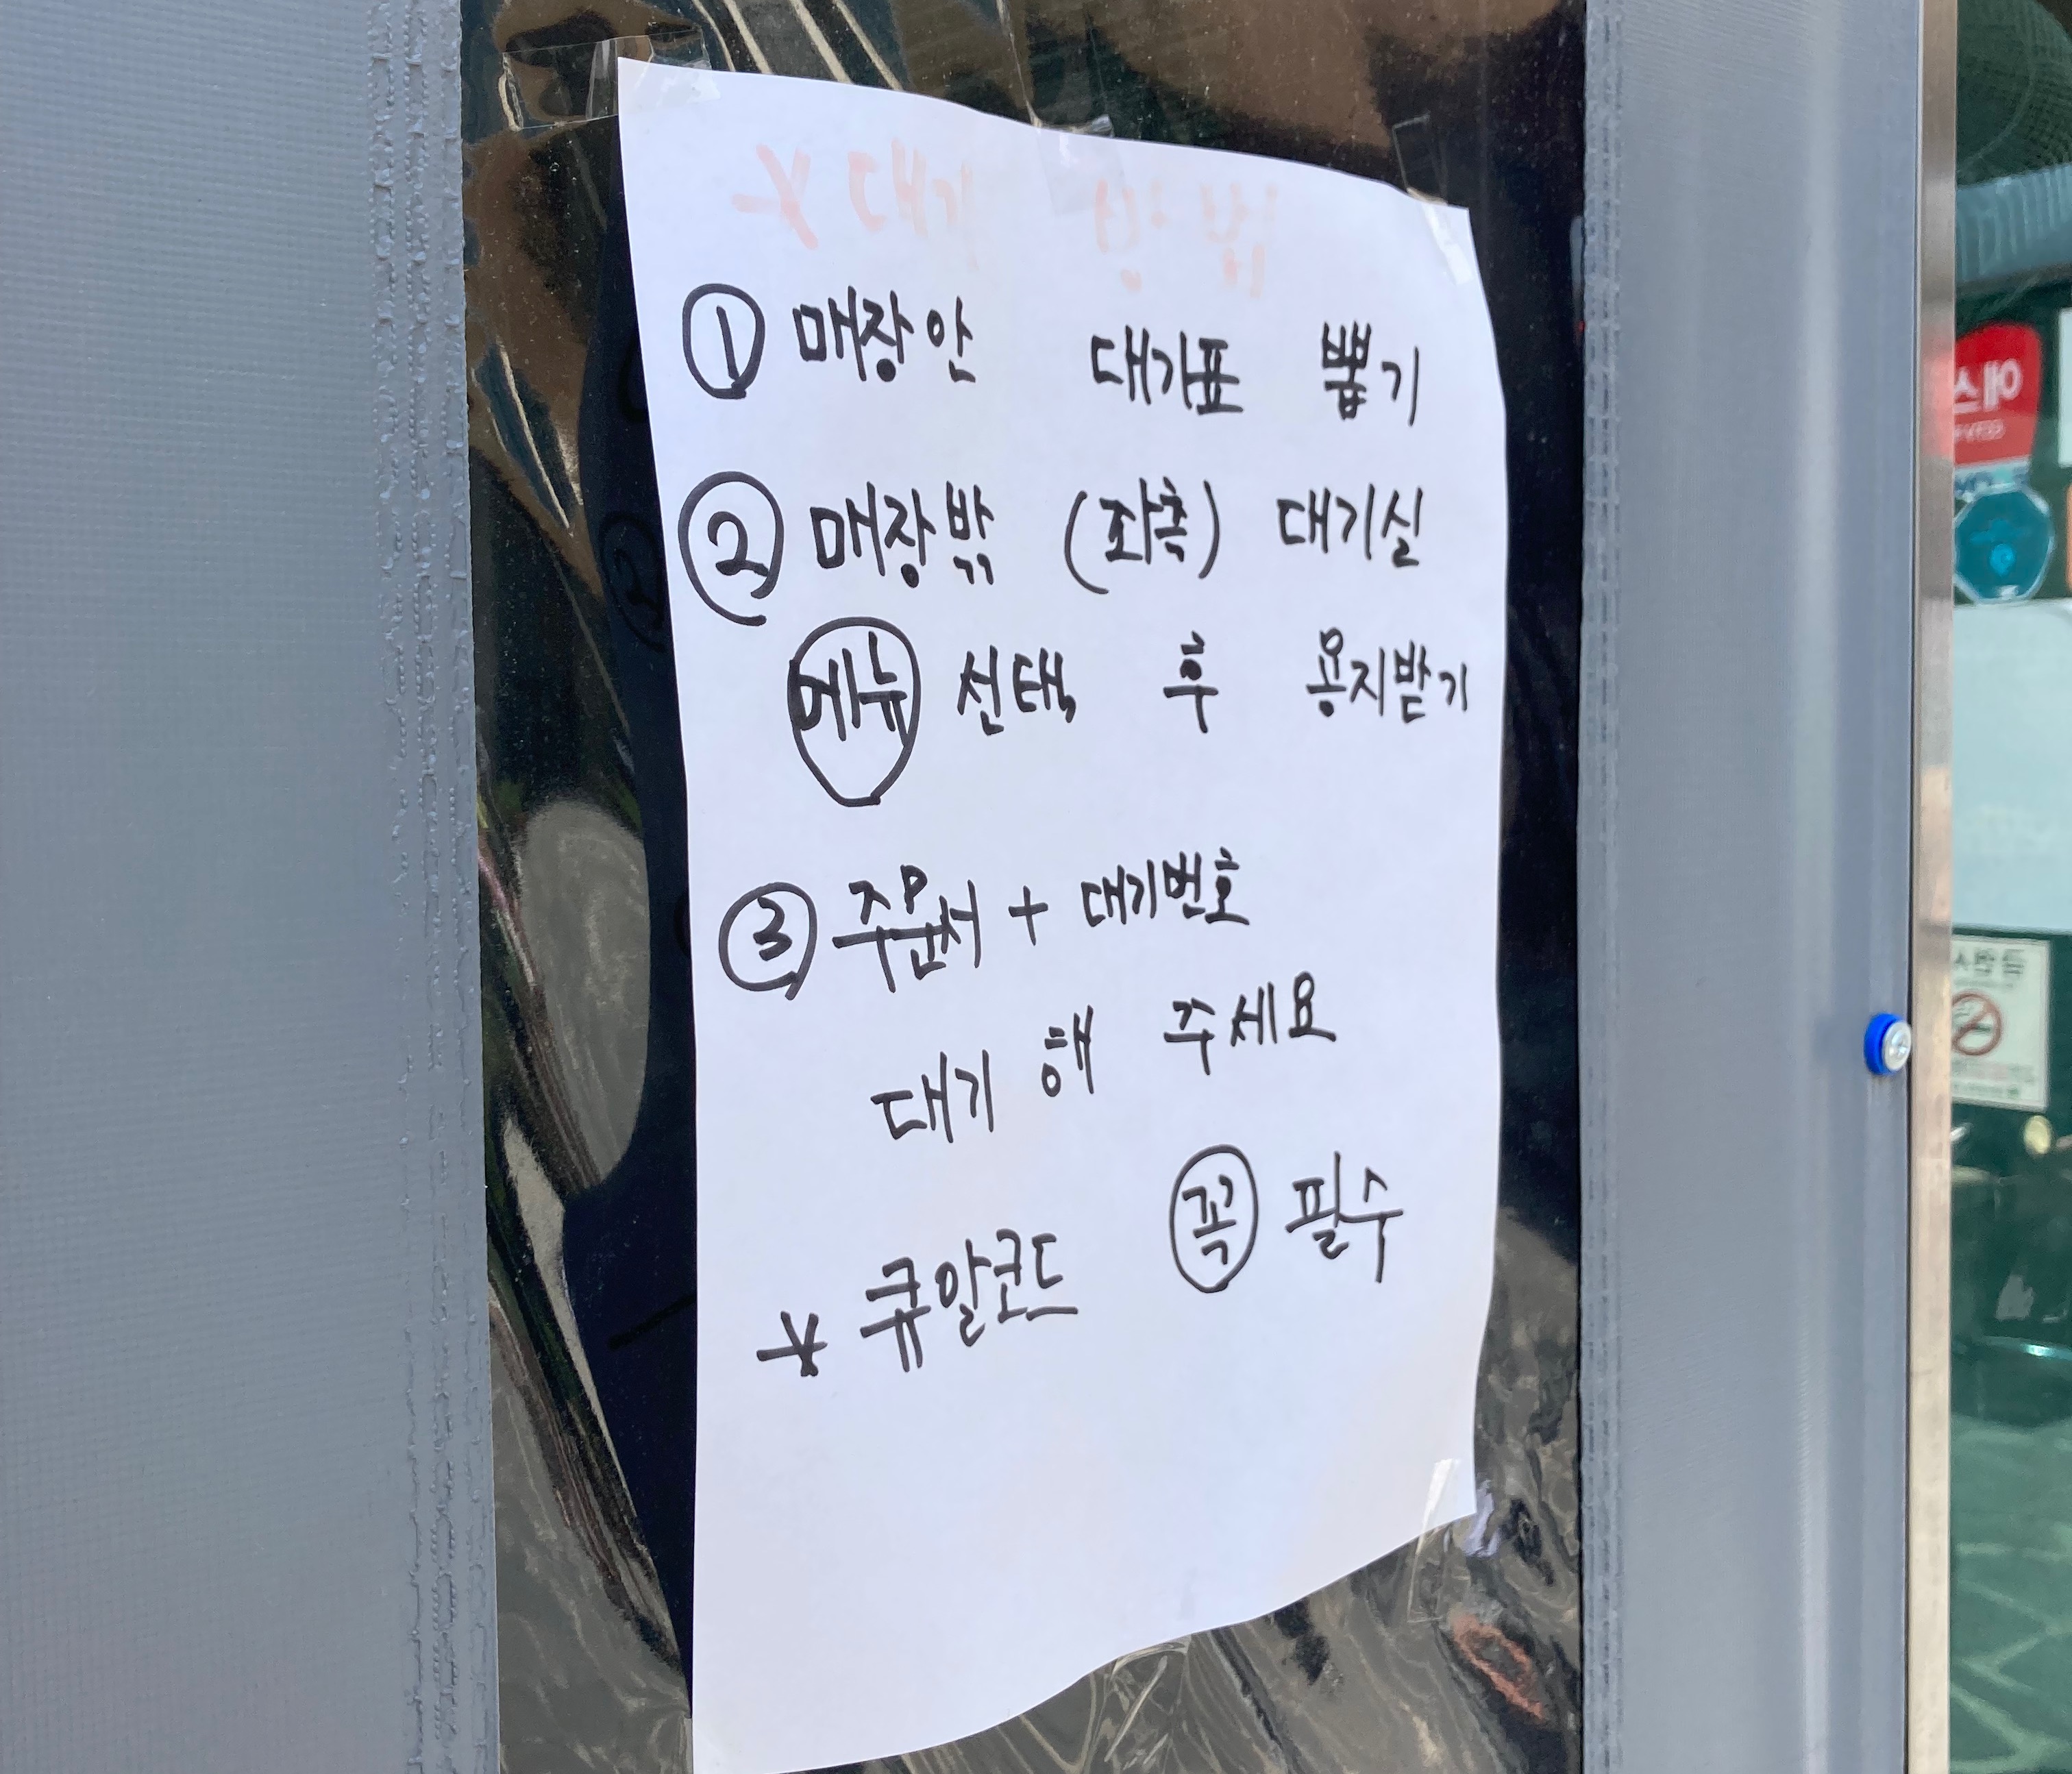 * 대기 방법
① 매장안 대기표 뽑기
② 매장밖 (좌측) 대기실
메뉴 선택 후 용지받기
③ 주문서 + 대기번호
대기 해 주세요
* 큐알코드 꼭 필수